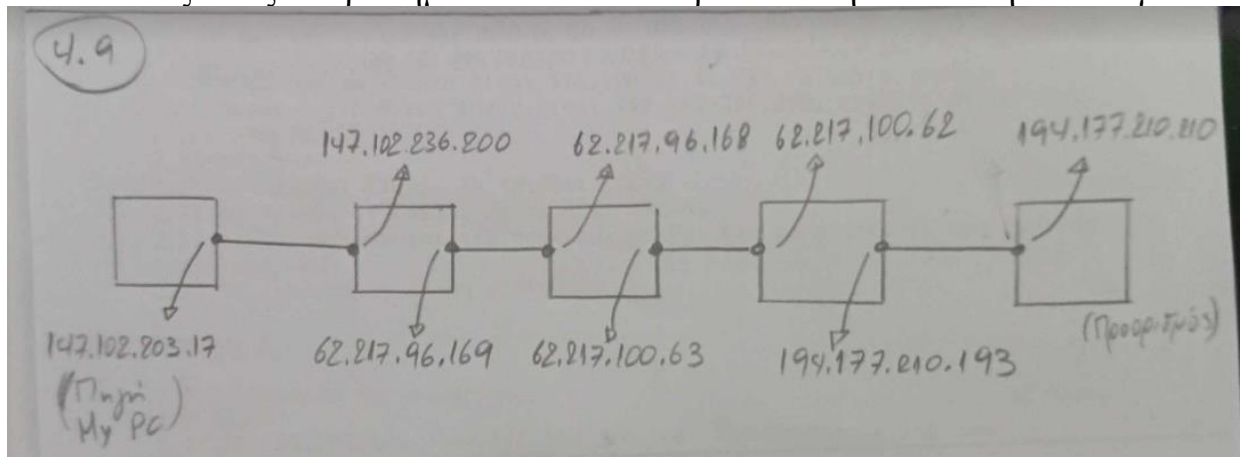 4.9
147.102.236.200 62.217.96.168 62.217.100.62 194.177.210.210
147.102.203.17 62.217.96.169 62.217.100.63 194.177.210.193 (Προορισμός)
(Πηγή
My PC)